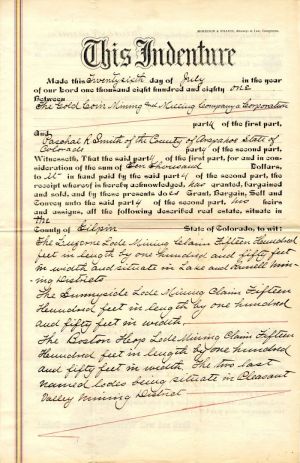 This Indenture
Made this Twenty sixth day of July in the year
of our Lord one thousand eight hundred and eighty one
Between
The Gold Coin Mining and Milling Company a Corporation
party of the first part,
And
Paschal R Smith of the County of Arapahoe State of
Colorado party of the second part,
Witnesseth, That the said party of the first part, for and in consideration
of the sum of Ten Thousand Dollars,
to it in hand paid by the said party of the second part, the
receipt whereof is hereby acknowledged, has granted, bargained
and sold, and by these presents does Grant, Bargain, Sell and
Convey unto the said party of the second part, his heirs
and assigns, all the following described real estate, situate in
the
County of Gilpin State of Colorado, to wit:
The Lode Mining Claim Fifteen Hundred
feet in length by one hundred and fifty feet
in width and situate in Lake and Russell Mining
Districts
The Sunnyside Lode Mining Claim Fifteen
Hundred feet in length by one hundred
and fifty feet in width.
The Boston Lode Mining Claim Fifteen
Hundred feet in length by one hundred
and fifty feet in width. The two last
named lodes being situate in Pleasant
Valley Mining District